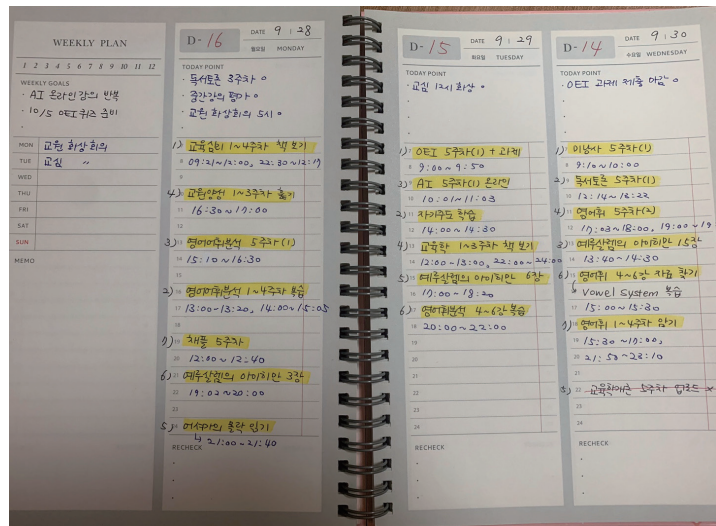 WEEKLY PLAN
1 2 3 4 5 6 7 8 9 10 11 12
WEEKLY GOALS
· AI 온라인강의 반복
· 10/5 OEI퀴즈 준비
·
MON 교원 화상회의
TUE 교심 〃
WED
THU
FRI
SAT
SUN
MEMO
D-16
DATE 9 | 28
월요일 MONDAY
TODAY POINT
· 독서토론 3주차 o
· 중간강의 평가 o
· 교원 화상회의 5시 o
1) 교육심리 1~4주차 책 보기
8 09:21~12:00, 22:30~12:17
9
4) 교원양성 1~3주차 훑기
11 16:30~17:00
12
3) 영어어휘분석 5주차(1)
14 15:10~16:30
15
2) 영어어휘분석 1~4주차 복습
17 13:00~13:20, 14:00~15:05
18
7) 채플 5주차
20 12:00~12:40
6) 예루살렘의 아이히만 3장
22 19:02~20:00
23
5) 어셔가의 몰락 읽기
↳ 21:00~21:40
RECHECK
D-15
DATE 9 | 29
화요일 TUESDAY
TODAY POINT
· 교심 12시 화상 o
1) OEI 5주차(1) + 과제
8 9:00~9:50
3) AI 5주차(1) 온라인
10 10:01~11:03
2) 자기주도 학습
12 14:00~14:30
4) 교육학 1~3주차 책 보기
14 12:00-13:00, 22:00~24:00
5) 예루살렘의 아이히만 6장
16 17:00~18:20
6) 영어휘분석 4~6강 복습
18 20:00~22:00
19
20
21
22
23
24
RECHECK
D-14
DATE 9 | 30
수요일 WEDNESDAY
TODAY POINT
· OEI 과제 제출 마감 o
1) 이낭사 5주차(1)
8 9:10~10:00
2) 독서토론 5주차(1)
10 12:14~13:22
4) 영어휘 5주차(2)
12 17:03~18:00, 19:00~19
3) 예루살렘의 아이히만 15장
14 13:40~14:30
6) 영어휘 4~6강 자습
↳ Vowel System 복습
17 15:00~15:30
7) 영어휘 1~4주차 암기
19 15:30~17:00,
20 21:50~23:10
21
5) 교육학개론 5주차 업로드 x
23
24
RECHECK